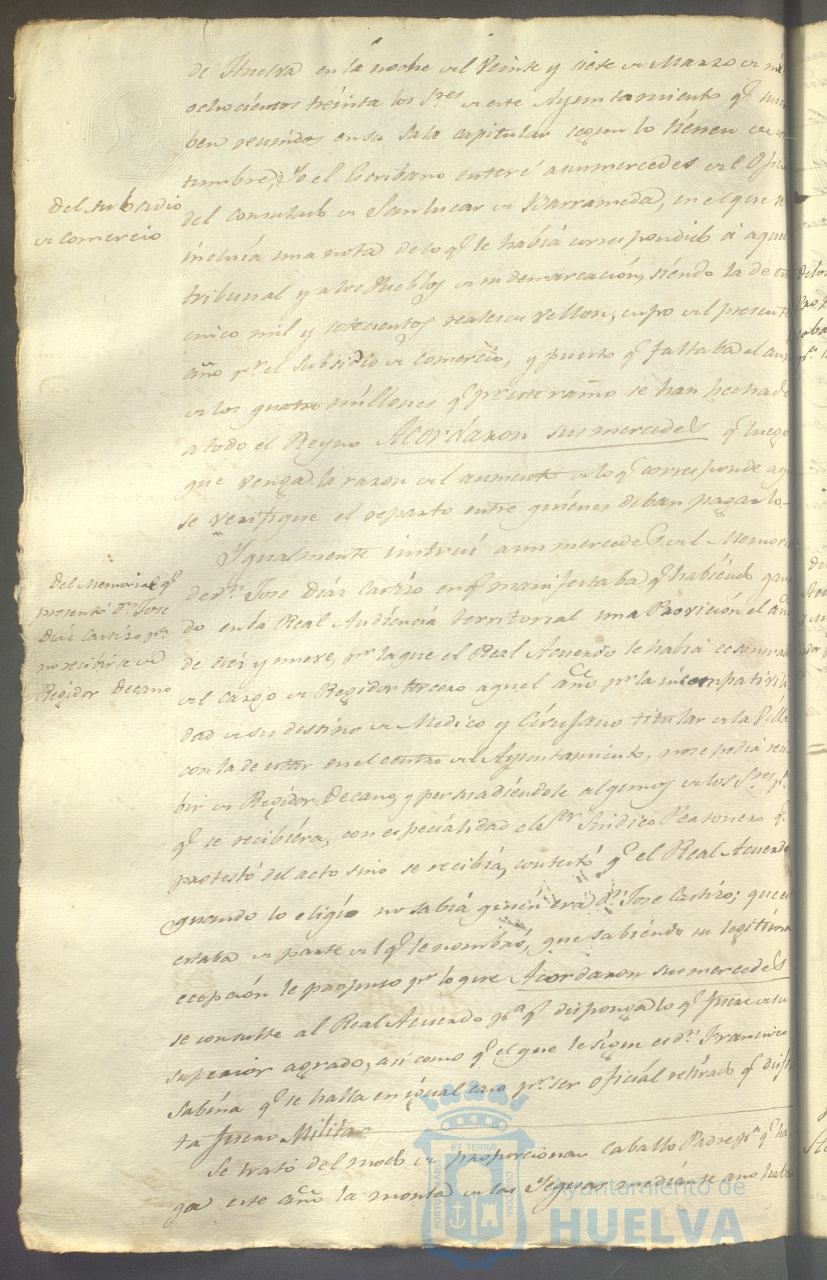 de Huelva en la noche del Veinte y siete de Marzo de mil
ochocientos treinta los S.res de este Ayuntamiento q.e
ben reunidos en su Sala capitular segun lo tienen de cos
tumbre, Yo el Escribano enteré a sus mercedes del Oficio
Del Subsidio
de comercio
del Consulado de San Lucar de Barrameda, en el que se
incluia una nota de lo q.e le habia correspondido á aquel
tribunal y a los Pueblos de su demarcacion, siendo la de
cinco mil y setecientos reales de vellon, cupo del presente
año p.r el subsidio de comercio, y puesto q.e faltaba el
de los quatro millones q.e p.r este ramo se han hechado
a todo el Reyno Acordaron sus mercedes q.e luego
que venga la razon del aumento de lo q.e corresponde
se verifique el reparto entre quienes deban pagarlo
Igualmente instruí a sus mercedes del Memorial
Del Memorial q.e
presentó D.n Jose
Diaz Castizo p.a
no recibirse de
Regidor Decano
de D.n José Diaz Castizo en q.e manifestaba q.e habiendo gana
do en la Real Audiencia territorial una Provicion el año
de diez y nueve, por la que el Real Acuerdo le habia exsonerado
del cargo de Regidor tercero aquel año p.r la incompativili
dad de su destino de Medico y Cirujano titular de la Villa
con la de estar en el centro del Ayuntamiento, no se podia reci
bir de Regidor Decano y persuadiendole algunos de los S.res p.a
q.e se recibiera, con especialidad el S.or Sindico Personero q.e
protestó del acto sino se recibia, contestó q.e el Real Acuerdo
quando lo eligió no sabia quien era D.n Jose Castizo; que
estaba de parte del q.e le nombró, que sabiendo su legitima
ecepcion le propuso p.r lo que Acordaron sus mercedes
se consulte al Real Acuerdo p.a q.e disponga lo q.e fuere de su
superior agrado, asi como q.e el que le sigue es D.n Francisco
Sabina q.e se halla en igual caso p.r ser Oficial retirado q.e disfru
ta fuero Militar
Se trató del modo de proporcionar Caballo Padre p.a q.e ha
ga este año la monta de las Yeguas mediante a no haber
PORTUS MARIS
ET TERRAE
CUSTODIA
Ayuntamiento de
HUELVA